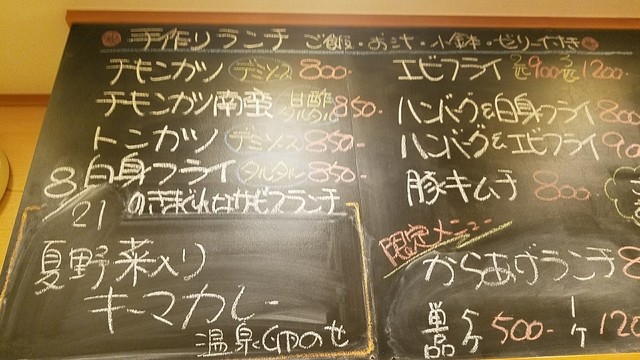 手作りランチ ご飯・お汁・小鉢・ゼリー付き
チキンカツ デミソース 800-
チキンカツ南蛮 甘酢タルタル 850-
トンカツ デミソース 850-
白身フライ タルタル 850
8/21 のきまぐれなサービスランチ
夏野菜入り
キーマカレー
温泉たまごのせ
エビフライ 2匹 900- 3匹 1200-
ハンバーグ&白身フライ
ハンバーグ&エビフライ
豚キムチ 800-
限定メニュー
からあげランチ
単品 5ケ 500-